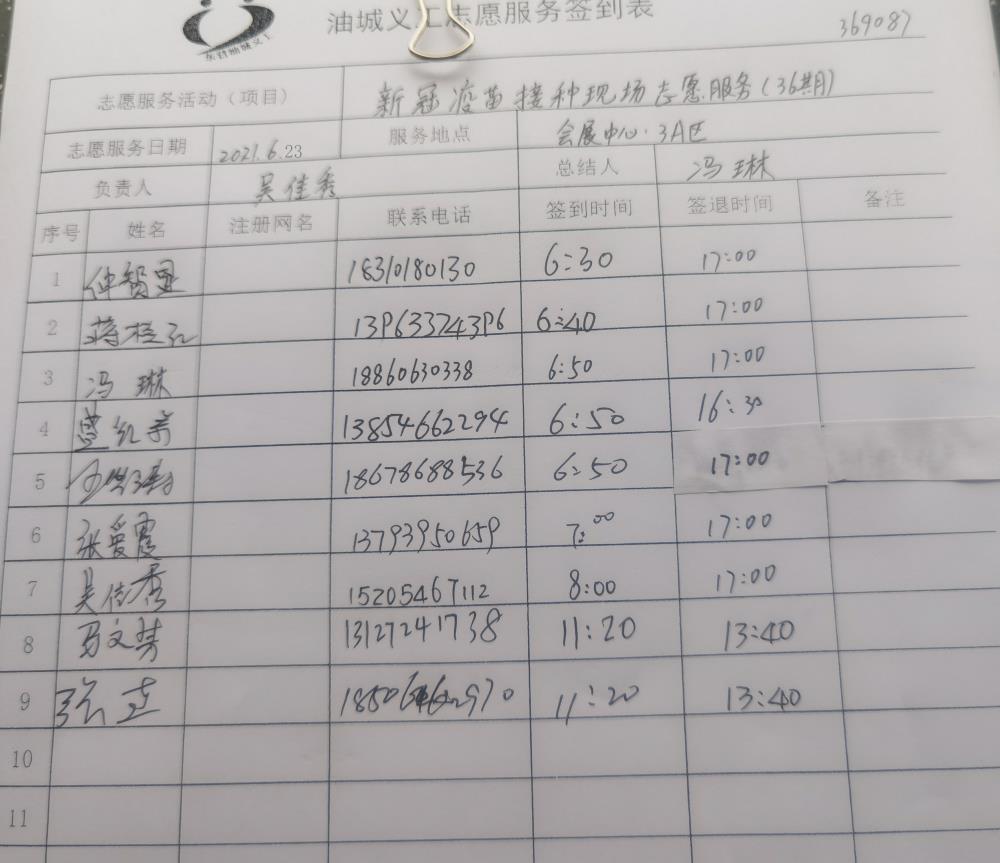 东营油城义工
油城义工志愿服务签到表
369087
志愿服务活动（项目） 新冠疫苗接种现场志愿服务(36期)
志愿服务日期 2021.6.23 服务地点 会展中心·3A区
负责人 吴佳秀 总结人 冯琳
序号 姓名 注册网名 联系电话 签到时间 签退时间 备注
1 18310180130 6:30 17:00
2 蒋桂红 6:40 17:00
3 冯琳 18860630338 6:50 17:00
4 13854662294 6:50 16:30
5 18678688536 6:50 17:00
6 张爱霞 13793950659 7:00 17:00
7 吴佳秀 15205467112 8:00 17:00
8 马文芹 13127241738 11:20 13:40
9 11:20 13:40
10
11